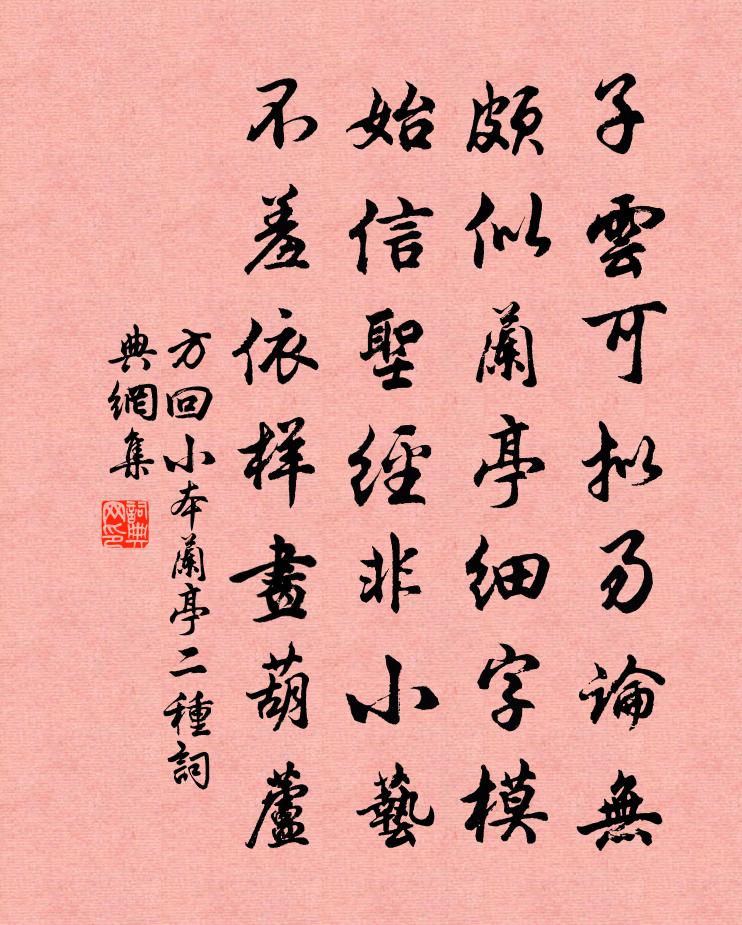 子雲可擬易論無
頗似蘭亭細字模
始信聖經非小藝
不羞依樣畫葫蘆
方回小本蘭亭二種詞
典網集
詞典網印